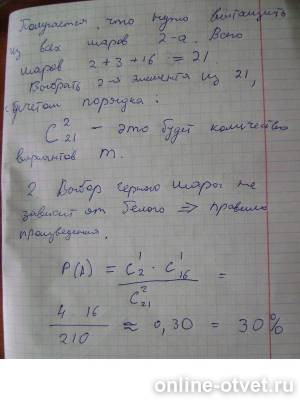 Получается что нужно вытащить
из всех шаров 2-а. Всего
шаров 2 + 3 + 16 = 21.
Выбрать 2-а элемента из 21,
с учетом порядка:
C²₂₁ – это будет количество
вариантов m.
2 Выбор черного шара не
зависит от белого ⇒ правило
произведения.
P(A) = C¹₂ · C¹₁₆ / C²₂₁ =
4 16 / 210 ≈ 0,30 = 30%
online-otvet.ru